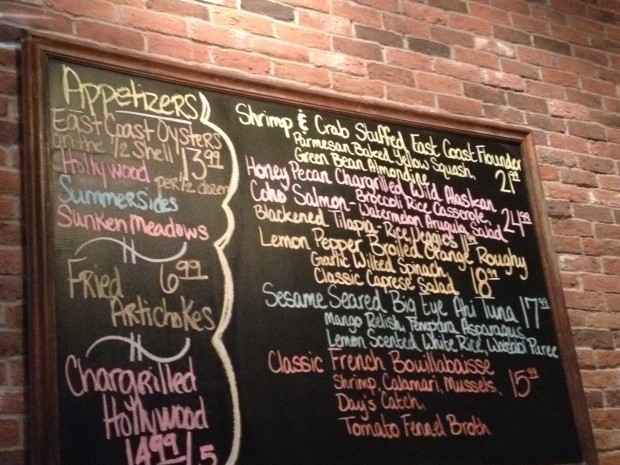 Appetizers
East Coast Oysters
on the 1/2 Shell 13.99
Hollywood per 1/2 dozen
Summersides
Sunken Meadows
Fried 6.99
Artichokes
Chargrilled
Hollywood
14.99/5
Shrimp & Crab Stuffed East Coast Flounder
Parmesan Baked Yellow Squash,
Green Bean Almondine 21.99
Honey Pecan Chargrilled Wild Alaskan
Coho Salmon - Broccoli Rice Casserole,
Watermelon Arugula Salad 24.99
Blackened Tilapia - Rice Veggies 11.99
Lemon Pepper Broiled Orange Roughy
Garlic Wilted Spinach,
Classic Caprese Salad 18.99
Sesame Seared Big Eye Ahi Tuna 17.99
Mango Relish, Tempura Asparagus
Lemon Scented White Rice, Wasabi Puree
Classic French Bouillabaisse
Shrimp, Calamari, Mussels, 15.99
Day's Catch,
Tomato Fennel Broth